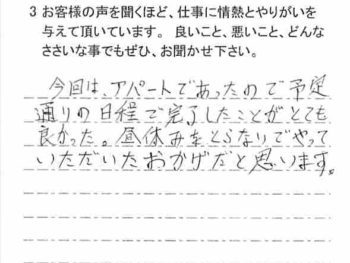 3 お客様の声を聞くほど、仕事に情熱とやりがいを
与えて頂いています。 良いこと、悪いこと、どんな
ささいな事でもぜひ、お聞かせ下さい。
今回は、アパートであったので予定
通りの日程で完了したことがとても
良かった。昼休みをとらなりでやって
いただいたおかげだと思います。